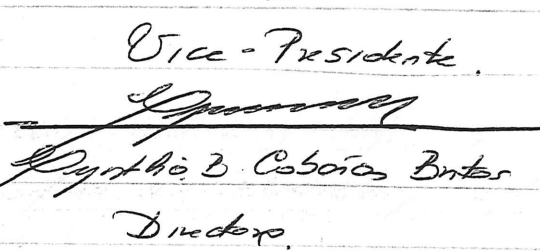 Vice-Presidente.
Cynthia B. Cobaias Britos
Directora.